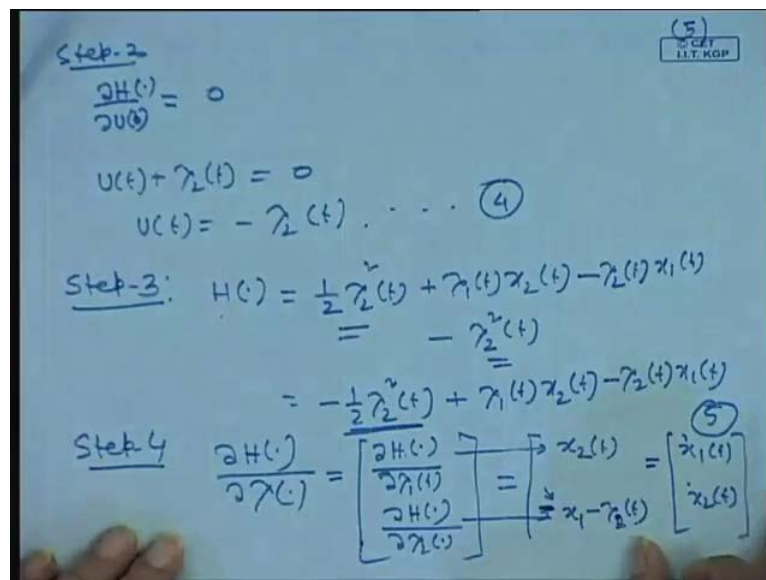 (5)
© CET
I.I.T. KGP
Step-2
∂H(·)/∂U(t) = 0
U(t) + λ₂(t) = 0
U(t) = - λ₂(t) . . . . . (4)
Step-3: H(·) = 1/2 λ₂²(t) + λ₁(t) x₂(t) - λ₂(t) x₁(t)
- λ₂²(t)
= - 1/2 λ₂²(t) + λ₁(t) x₂(t) - λ₂(t) x₁(t)
(5)
Step-4 ∂H(·)/∂λ(·) = [∂H(·)/∂λ₁(t) ∂H(·)/∂λ₂(·)] = [x₂(t) - x₁ - λ₂(t)] = [ẋ₁(t) ẋ₂(t)]